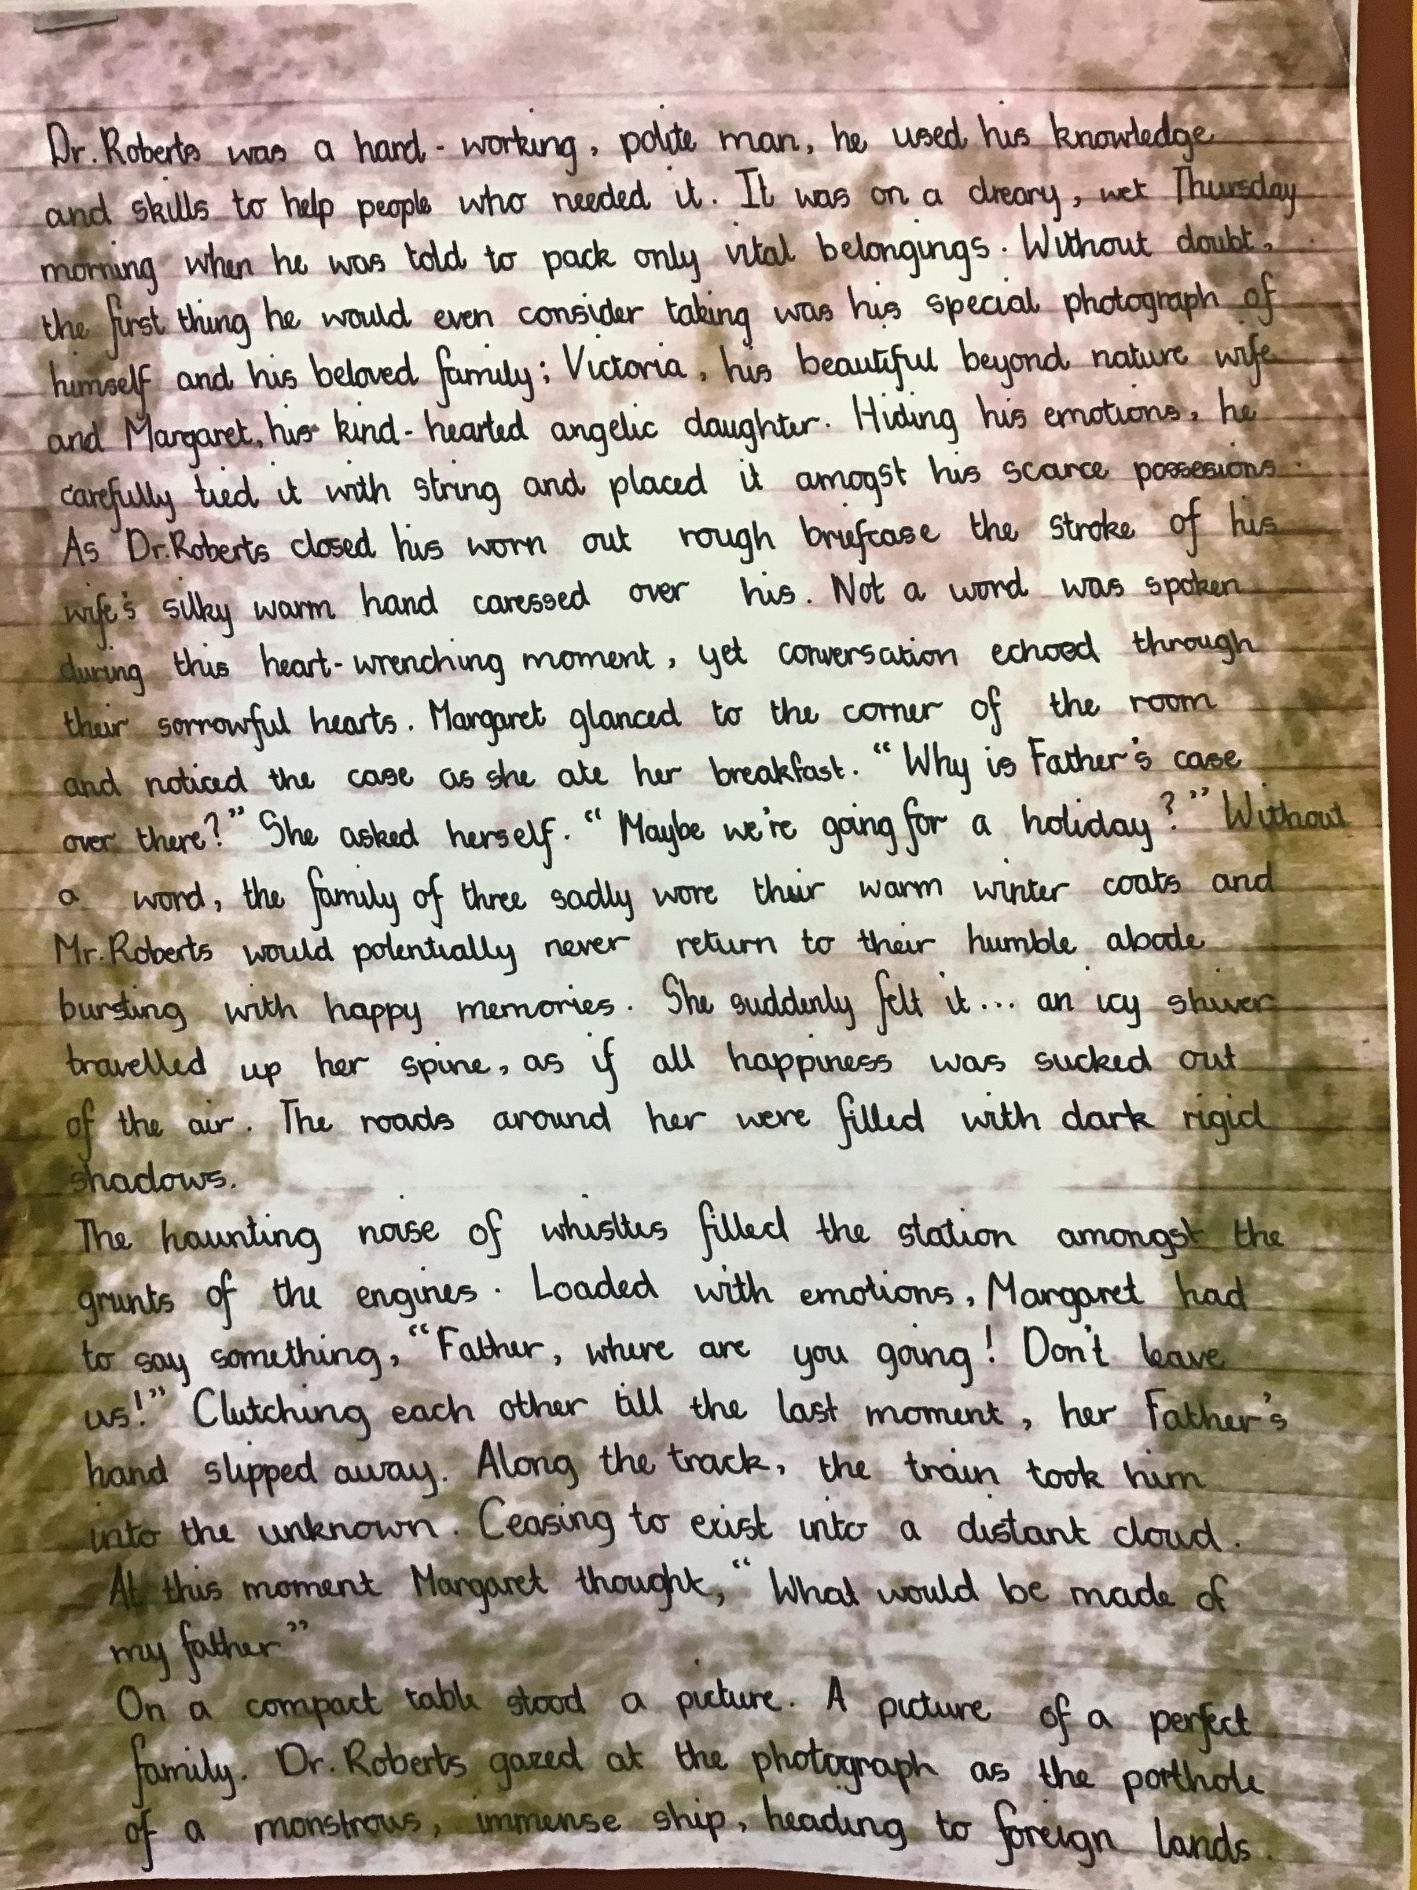 Dr.Roberts was a hard-working, polite man, he used his knowledge
and skills to help people who needed it. It was on a dreary, wet Thursday
morning when he was told to pack only vital belongings. Without doubt,
the first thing he would even consider taking was his special photograph of
himself and his beloved family; Victoria, his beautiful beyond nature wife
and Margaret, his kind-hearted angelic daughter. Hiding his emotions, he
carefully tied it with string and placed it amogst his scarce possesions.
As Dr.Roberts closed his worn out rough briefcase the stroke of his
wife's silky warm hand caressed over his. Not a word was spoken
during this heart-wrenching moment, yet conversation echoed through
their sorrowful hearts. Margaret glanced to the corner of the room
and noticed the case as she ate her breakfast. "Why is Father's case
over there?" She asked herself. "Maybe we're going for a holiday?" Without
a word, the family of three sadly wore their warm winter coats and
Mr.Roberts would potentially never return to their humble abode
bursting with happy memories. She suddenly felt it... an icy shiver
travelled up her spine, as if all happiness was sucked out
of the air. The roads around her were filled with dark rigid
shadows.
The haunting noise of whistles filled the station amongst the
grunts of the engines. Loaded with emotions, Margaret had
to say something, "Father, where are you going! Don't leave
us!" Clutching each other till the last moment, her Father's
hand slipped away. Along the track, the train took him
into the unknown. Ceasing to exist into a distant cloud.
At this moment Margaret thought, "What would be made of
my father"
On a compact table stood a picture. A picture of a perfect
family. Dr.Roberts gazed at the photograph as the porthole
of a monstrous, immense ship, heading to foreign lands.